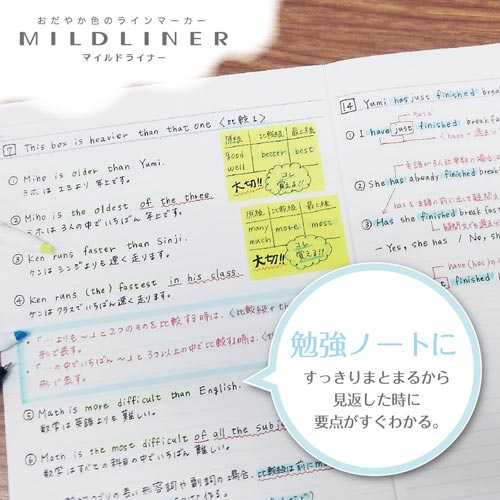 おだやか色のラインマーカー
MILDLINER
マイルドライナー
7 This box is heavier than that one 〈比較1〉
① Miho is older than Yumi.
ミホは ユミより 年上です。
② Miho is the oldest of the three.
ミホは 3人の中でいちばん 年上です。
③ Ken runs faster than Sinji.
ケンは シンジよりも 速く 走ります。
④ Ken runs (the) fastest in his class.
ケンは クラスでいちばん速く 走ります。
・「…よりも〜」と2つのものを比較する時は、〈比較級+th
形で表す。
・「…の中でいちばん〜」と3つ以上の中で比較する時は、〈
形で表す。
⑤ Math is more difficult than English.
数学は 英語よりも 難しい。
⑥ Math is the most difficult of all the subj
数学は すべての 科目の中で いちばん 難しい。
つづりの長い 形容詞や 副詞の 場合、比較級は前にm
原級 比較級 最上級
good better best
well
大切!! コレ覚える!!
原級 比較級 最上級
many more most
much
大切!! コレ覚える!!
14 Yumi has just finished breakf
① I have just finished breakf
② She has already finished break
③ Has she finished breakfast
― Yes, she has / No, sh
have(has)の
finished break
勉強ノートに
すっきりまとまるから
見返した時に
要点がすぐわかる。